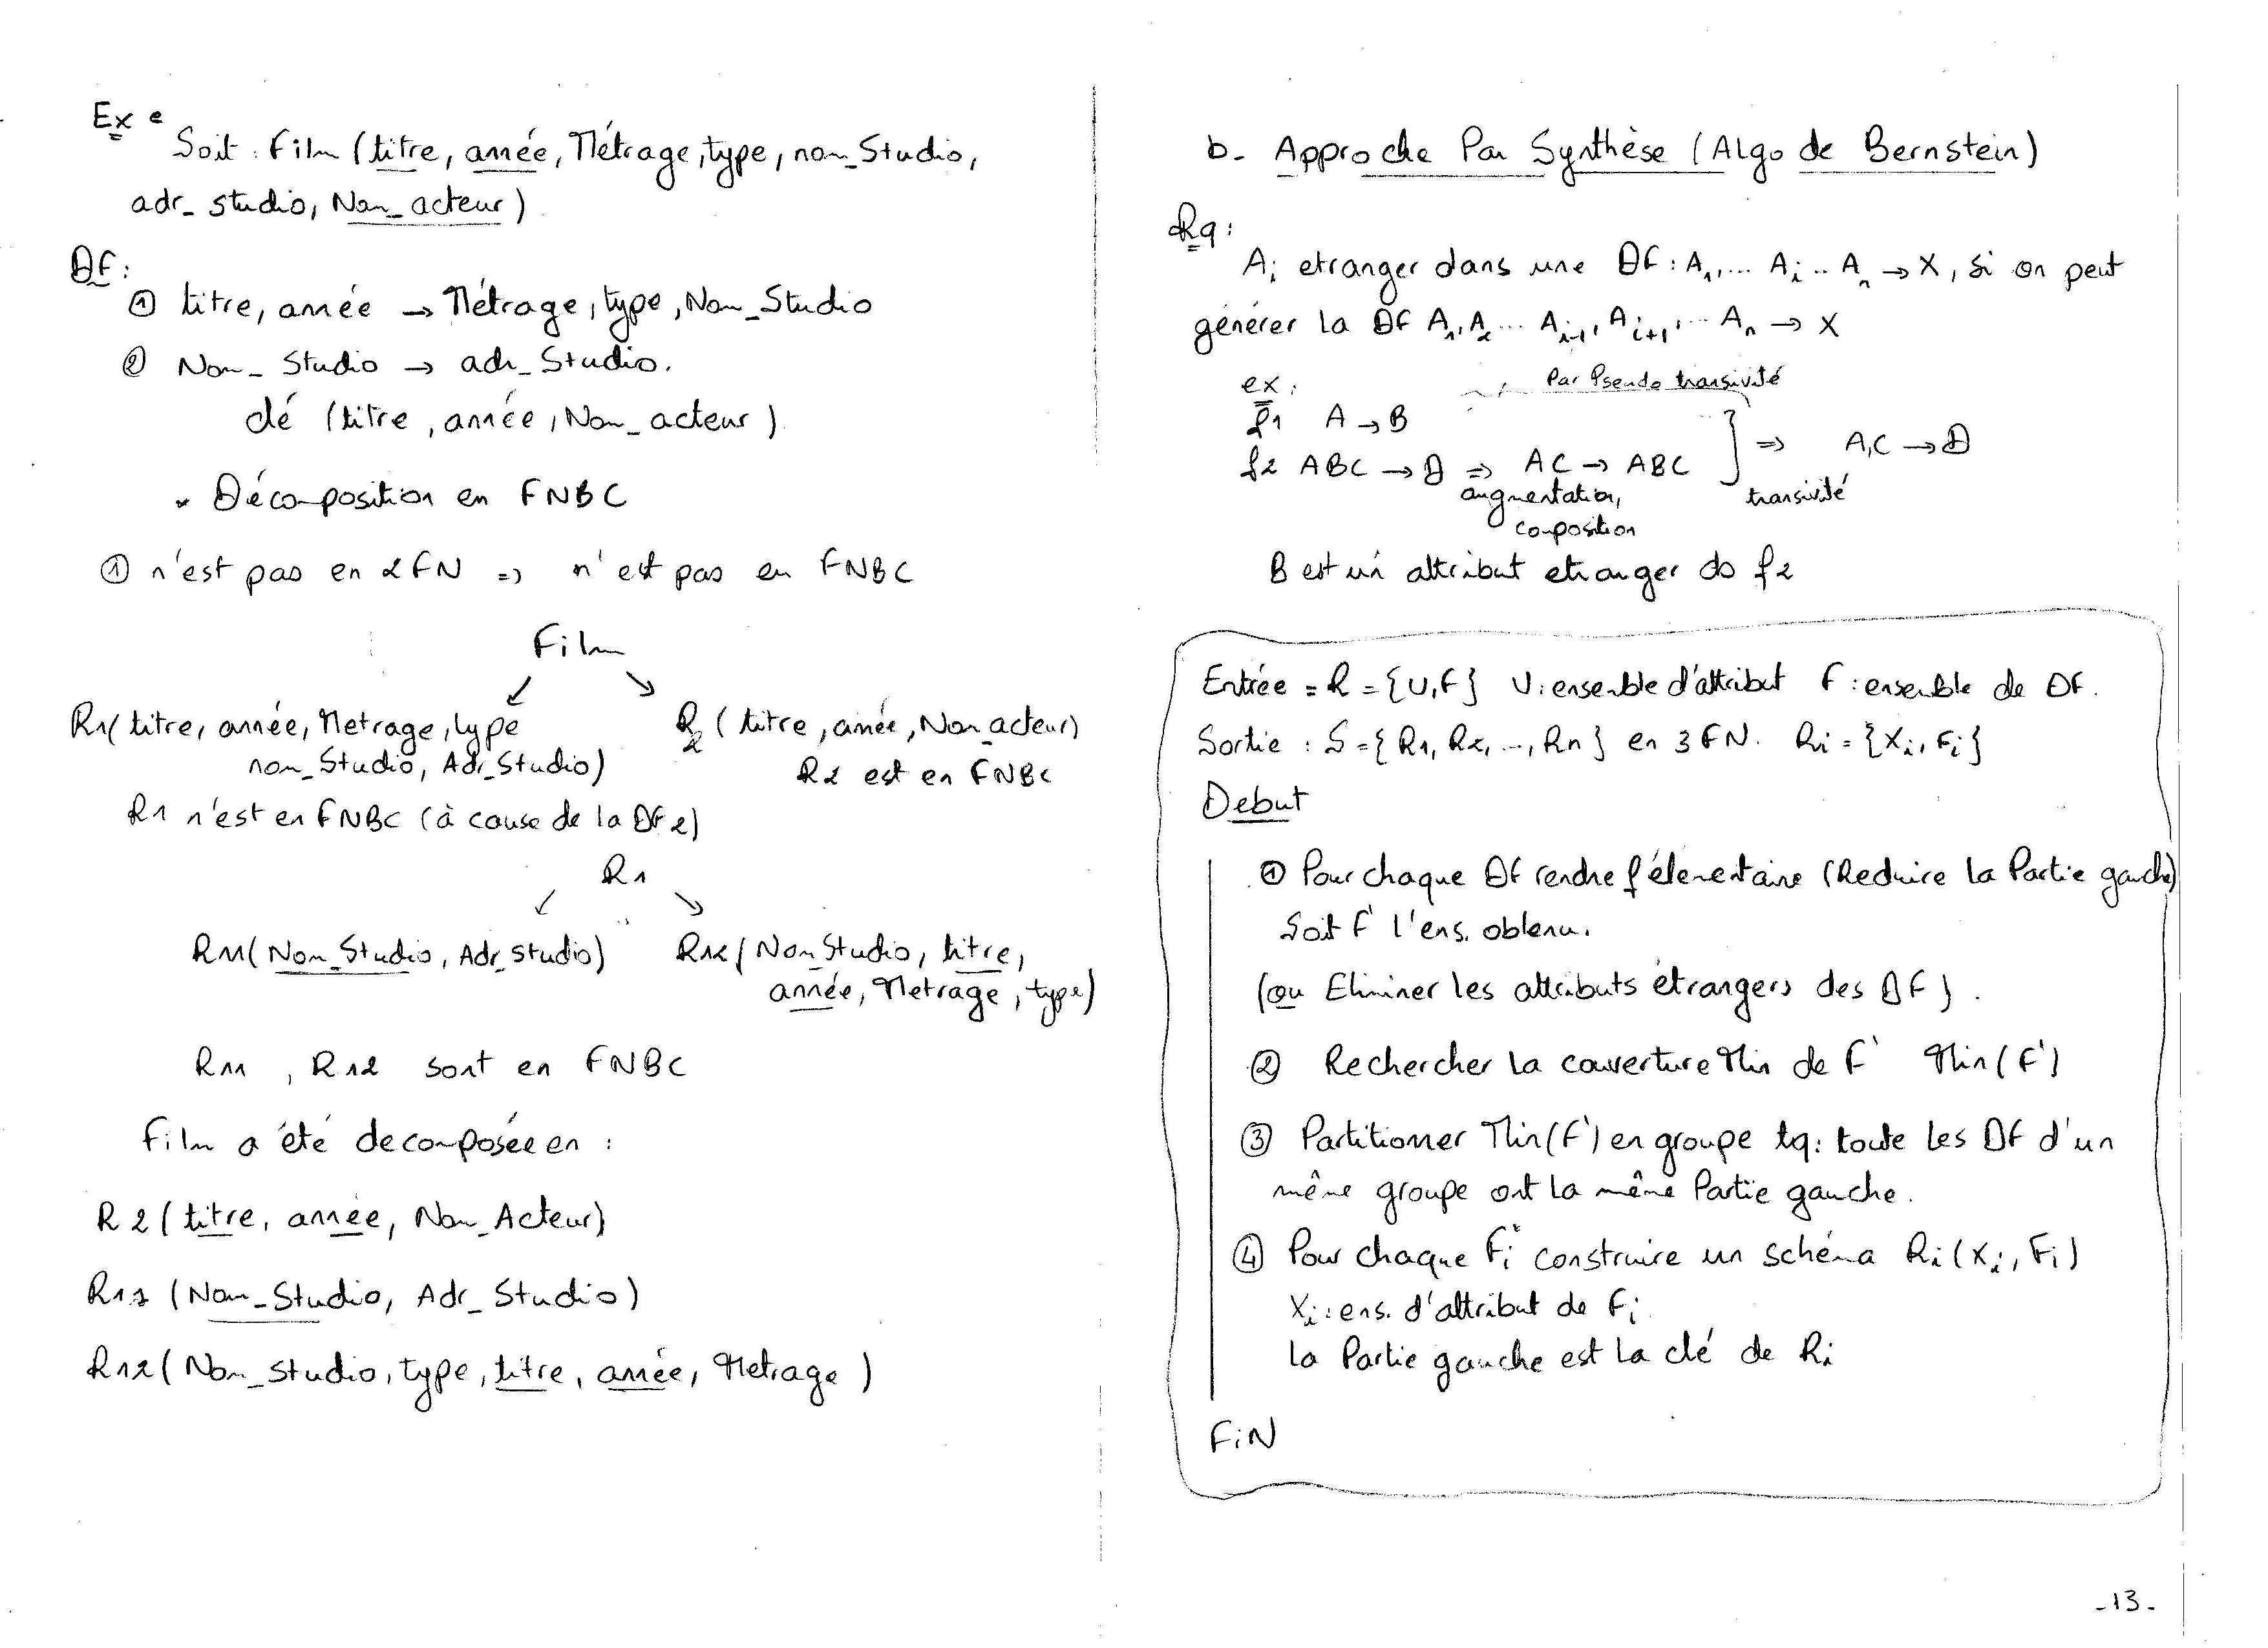 Ex e
Soit : Film (titre, année, Métrage, type, nom_Studio,
adr_studio, Nom_acteur)
DF :
① titre, année → Métrage, type, Nom_Studio
② Nom_Studio → adr_Studio.
clé (titre, année, Nom_acteur)
* Décomposition en FNBC
① n'est pas en 2FN => n'est pas en FNBC
Film
↙ ↘
R1( titre, année, Metrage, type
nom_Studio, Adr_Studio)
R2 ( titre, année, Nom_acteur)
R2 est en FNBC
R1 n'est en FNBC (à cause de la DF2)
R1
↙ ↘
R11( Nom_Studio, Adr_studio)
R12( Nom_Studio, titre,
année, Metrage, type)
R11 , R12 sont en FNBC
Film a été decomposée en :
R2 ( titre, année, Nom_Acteur)
R11 (Nom_Studio, Adr_Studio)
R12 ( Nom_studio, type, titre, année, Metrage )
b- Approche Par Synthèse ( Algo de Bernstein)
Rq :
Ai etranger dans une DF : A1, ... Ai .. An → X, si on peut
générer la DF A1, A2 ... Ai-1, Ai+1, ... An → X
ex :
Par Pseudo transivité
f1 A → B
f2 ABC → D => AC → ABC ] => A,C → D
augmentation, transivité
composition
B est un attribut etranger ds f2
Entrée = R = {U,F} U : ensemble d'attribut F : ensemble de DF.
Sortie : S = { R1, R2, ..., Rn } en 3FN. Ri = {Xi, Fi}
Debut
① Pour chaque Df rendre f élementaire (Reduire la Partie gauche)
Soit F' l'ens. obtenu.
(ou Eliminer les attributs étrangers des DF) .
② Rechercher la couverture Min de F' Min(F')
③ Partitionner Min(F') en groupe tq : toute les DF d'un
même groupe ont la même Partie gauche.
④ Pour chaque Fi construire un schéma Ri (Xi, Fi)
Xi : ens. d'attribut de Fi
la Partie gauche est la clé de Ri
FiN
-13-